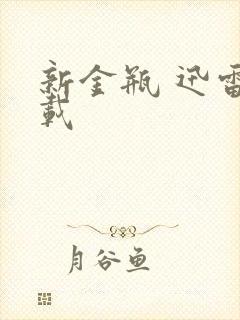 新金瓶 迅雷
载
月谷鱼